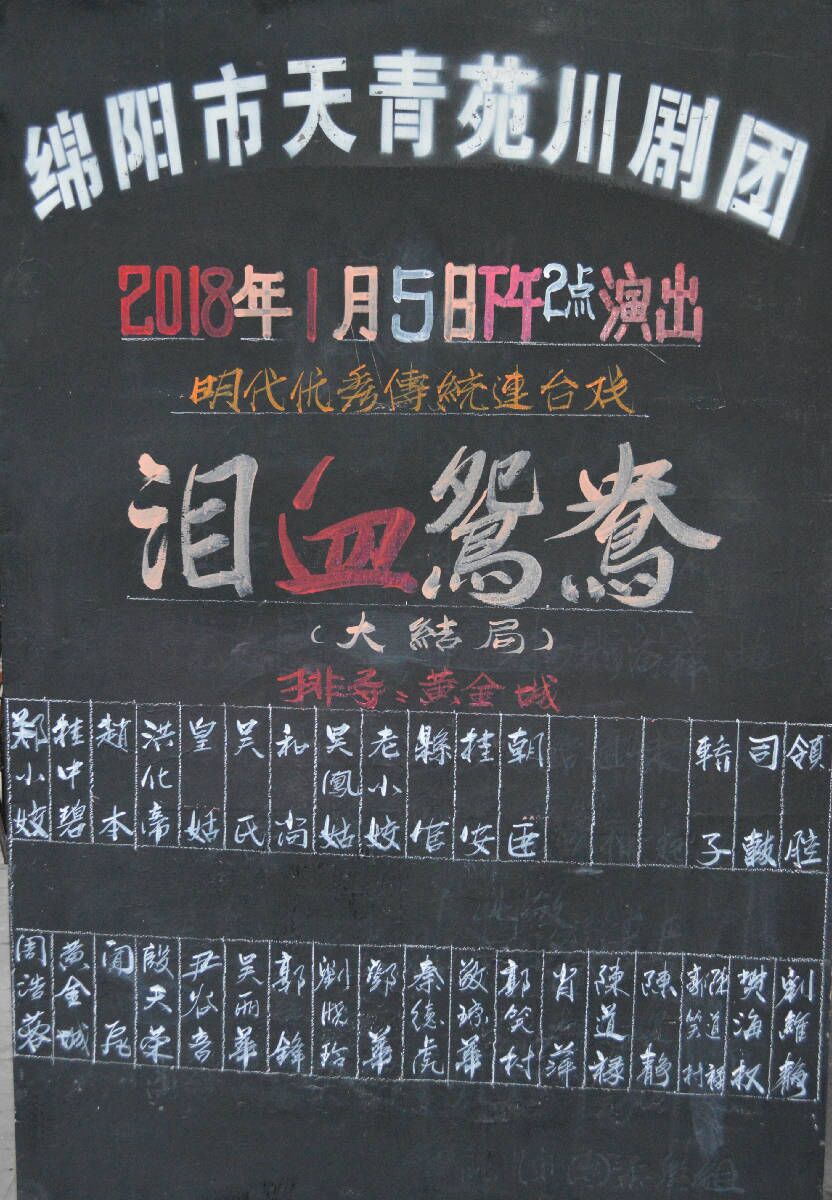 绵阳市天青苑川剧团
2018年1月5日下午2点演出
明代优秀傳統連台戏
泪血鸳鸯
（大結局）
排导：黄金城
郑小姣
桂中碧
趙本
洪化帝
皇姑
吴氏
和尚
吴鳳姑
老小姣
縣官
桂安
朝臣
轿子
司鼓
領腔
周浩蓉
黄金城
殷天荣
吴丽華
郭鋒
劉晓玲
鄧華
秦德虎
敬琼華
郭笑村
肖萍
陳道禄
陳静
郭笑村
陳道禄
樊海权
劉維静